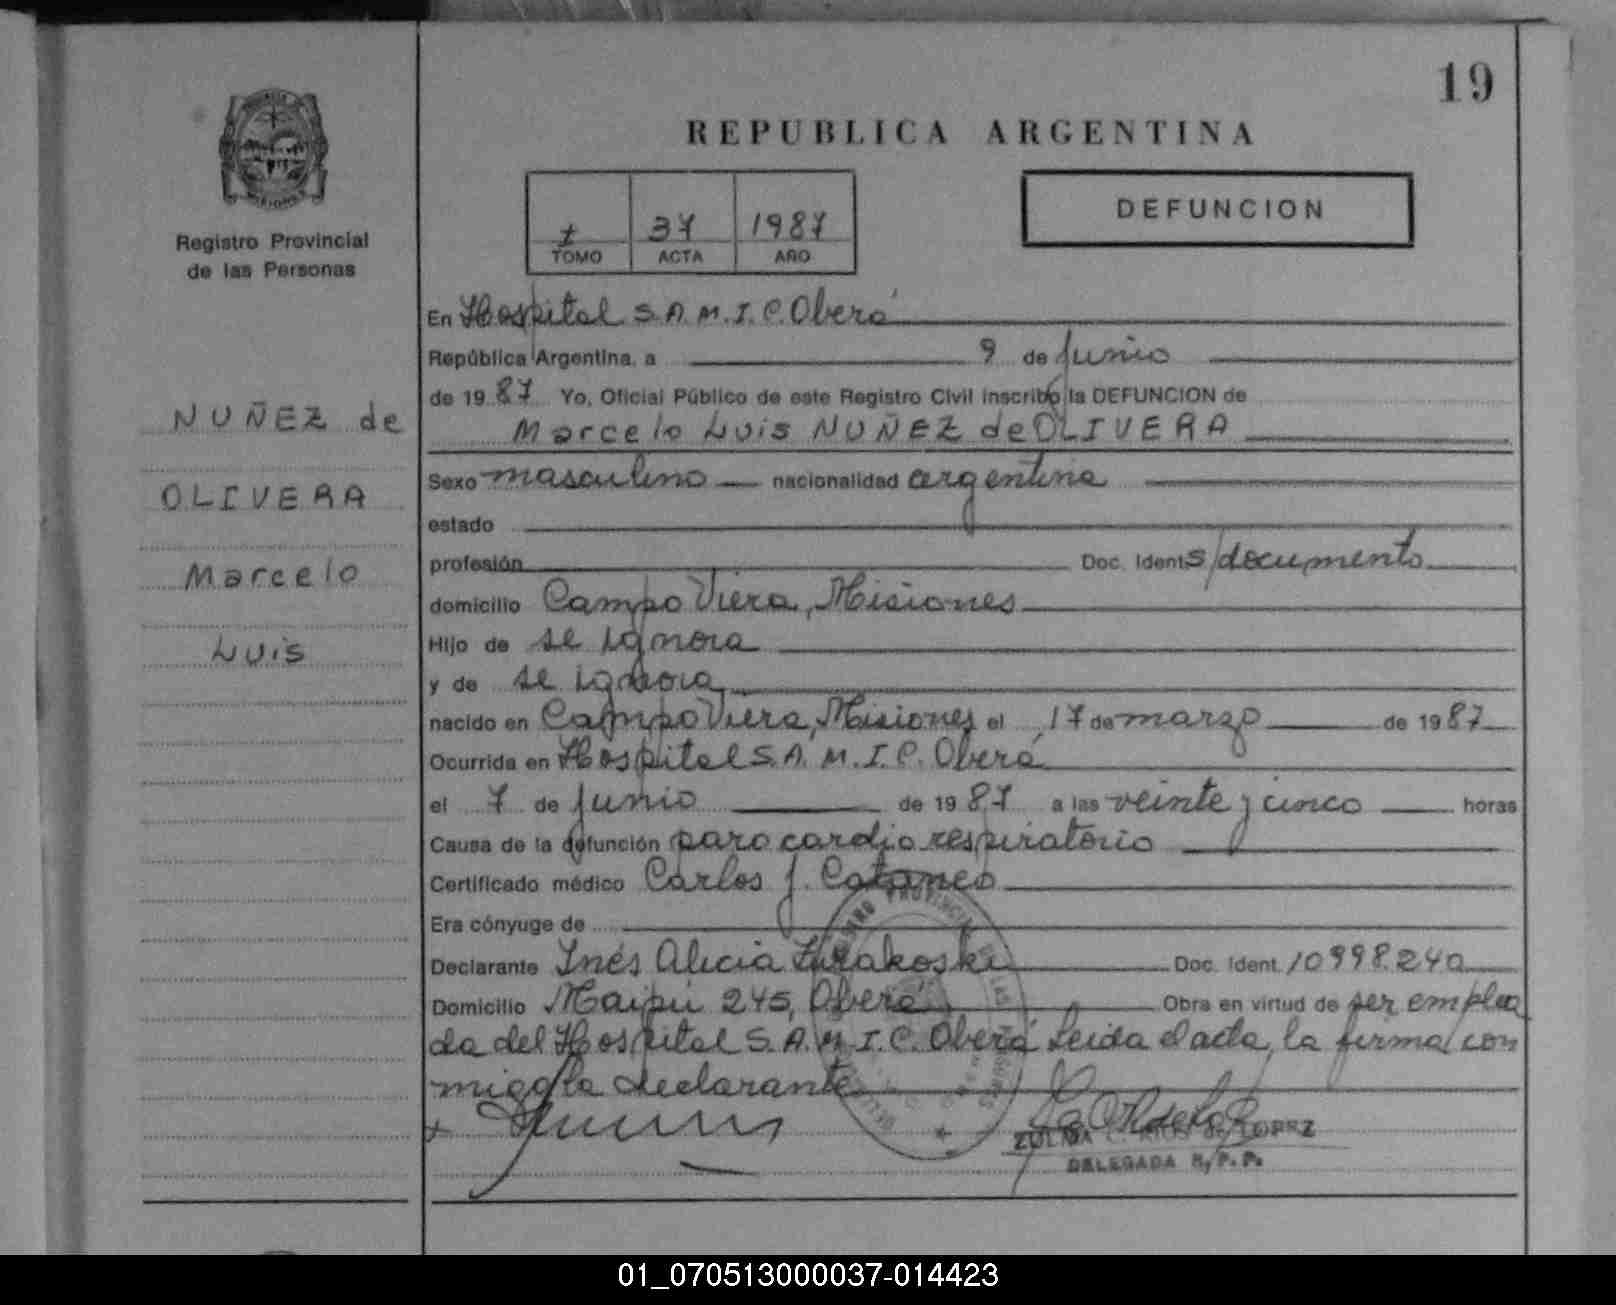 19
REPUBLICA ARGENTINA
Registro Provincial
de las Personas
I 37 1987
TOMO ACTA AÑO
DEFUNCION
NUÑEZ de
OLIVERA
Marcelo
Luis
En Hospital S.A.M.I.C. Oberá
República Argentina, a 9 de junio
de 1987 Yo, Oficial Público de este Registro Civil inscribo la DEFUNCION de
Marcelo Luis NUÑEZ de OLIVERA
Sexo masculino nacionalidad argentina
estado
profesión Doc. Ident. s/documento
domicilio Campo Viera, Misiones
Hijo de se ignora
y de se ignora
nacido en Campo Viera, Misiones el 17 de marzo de 1987
Ocurrida en Hospital S.A.M.I.C. Oberá
el 7 de junio de 1987 a las veinte y cinco horas
Causa de la defunción paro cardio respiratorio
Certificado médico Carlos J. Cataneo
Era cónyuge de
Declarante Inés Alicia Doc. Ident. 10998.240
Domicilio Maipú 245, Oberá Obra en virtud de ser emplea
da del Hospital S.A.M.I.C. Oberá Leida el acta, la firma con
migo la declarante
ZULMA DE LOPEZ
DELEGADA R.P.P.
01_070513000037-014423